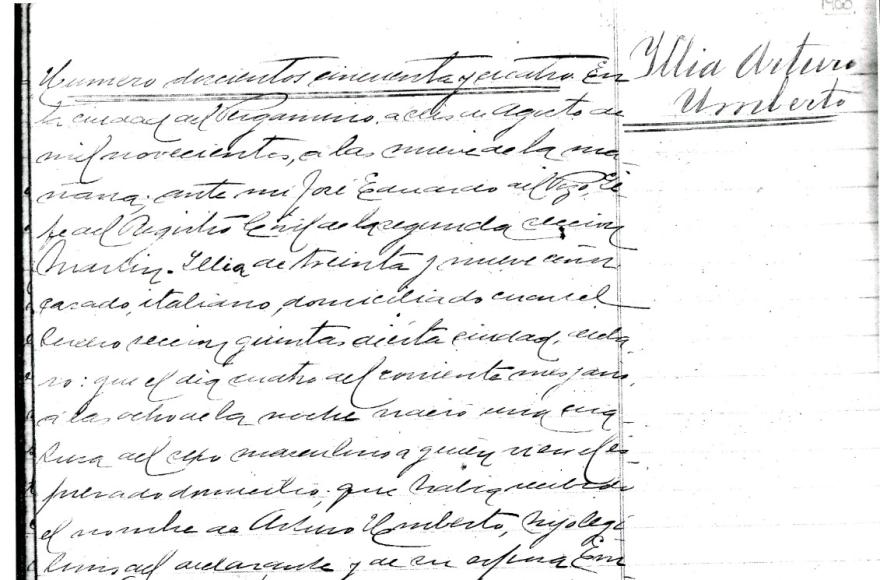 1900.
Illia Arturo
Umberto
Numero doscientos cincuenta y cuatro. En
la ciudad del Pergamino, a de Agosto de
mil novecientos, a las nueve de la ma
ñana; ante mi José Eduardo del Pozo, Ge
fe del Registro Civil de la segunda seccion
Martin Illia de treinta y nueve años
casado, italiano, domiciliado cuartel
tercero seccion quintas de esta ciudad, decla
ro: que el dia cuatro del corriente mes
a las ocho de la noche nació una cria
tura del sexo masculino a quien vi en el es
presado domicilio; que habia recibido
el nombre de Arturo Umberto, hijo legi
timo del declarante y de su esposa Em